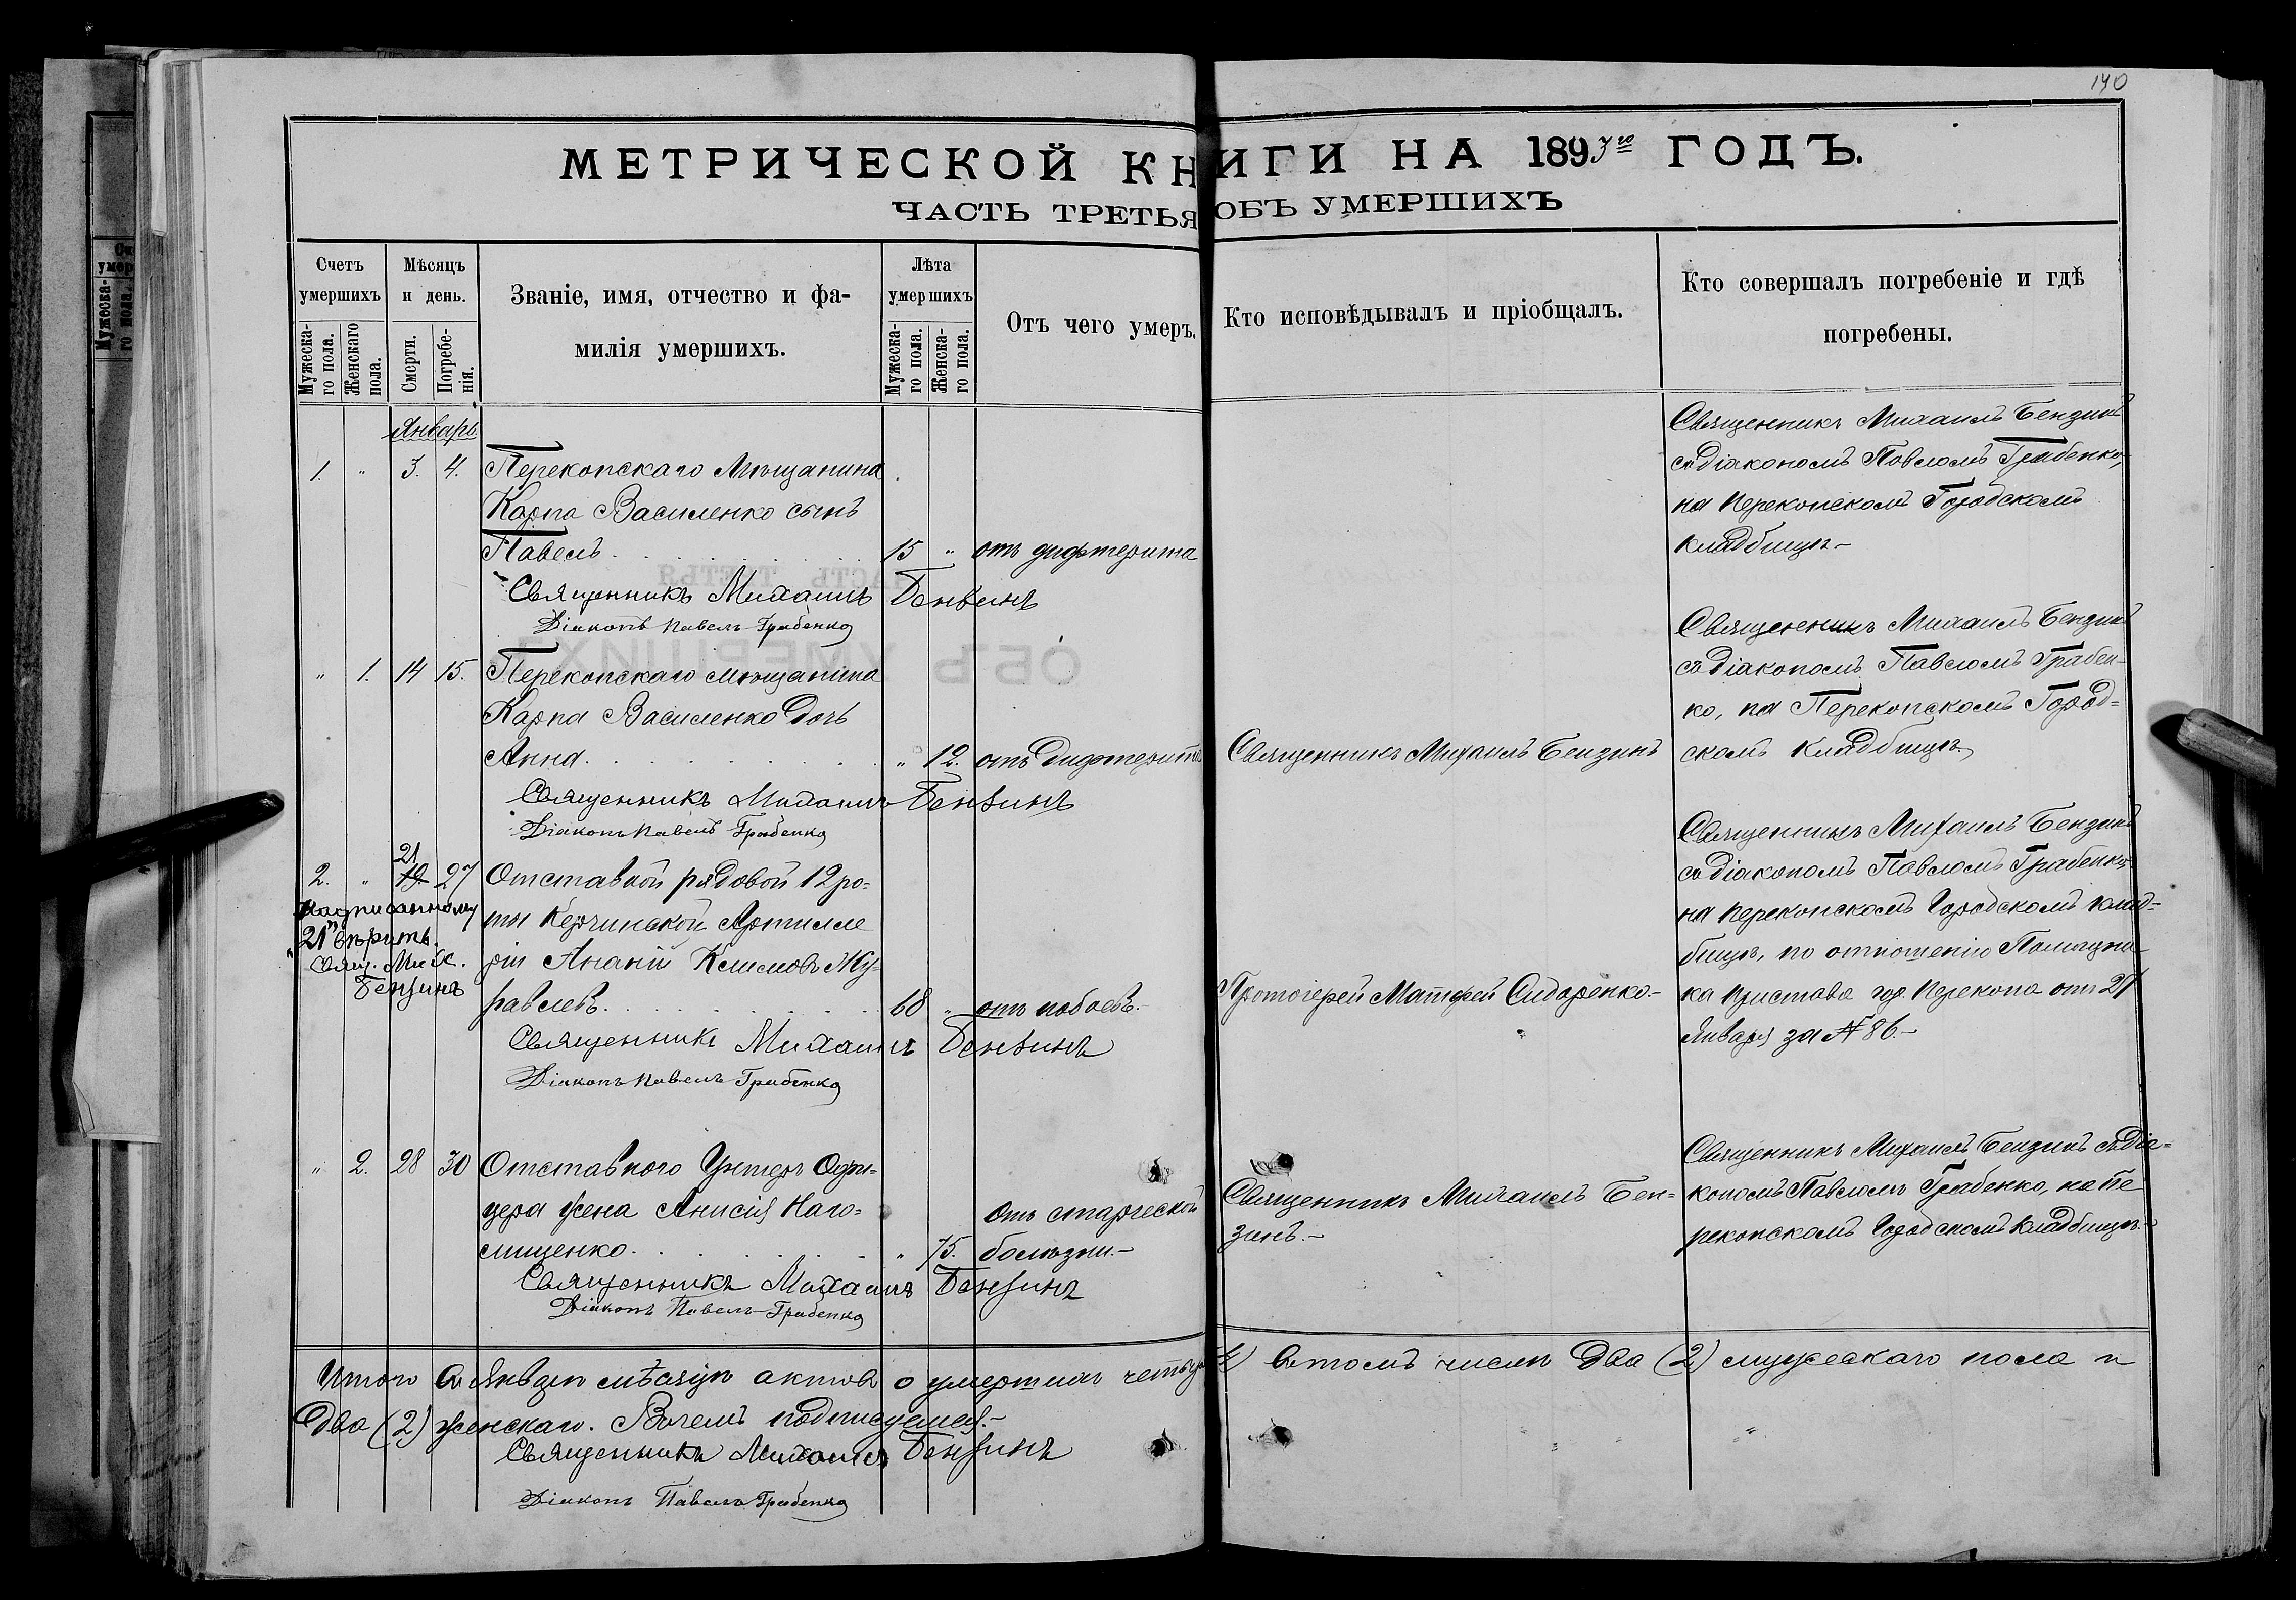 140
МЕТРИЧЕСКОЙ КНИГИ НА 1893го ГОДЪ.
ЧАСТЬ ТРЕТЬЯ ОБЪ УМЕРШИХЪ
Счетъ умершихъ
Мужескаго пола.
Женскаго пола.
Мѣсяцъ и день.
Смерти.
Погребенія.
Званіе, имя, отчество и фа-
милія умершихъ.
Лѣта умершихъ
Мужеска-го пола.
Женска-го пола.
Отъ чего умеръ.
Кто исповѣдывалъ и пріобщалъ.
Кто совершалъ погребеніе и гдѣ
погребены.
Январь
1. " 3. 4. Перекопскаго Мѣщанина
Карпа Василенко сынъ
Павелъ 15 " отъ дифтерита
Священникъ Михаилъ Бензинъ
Діаконъ Павелъ Грабенко
Священникъ Михаилъ Бензинъ
съ діакономъ Павломъ Грабенко,
на Перекопскомъ Городскомъ
кладбищѣ.-
" 1. 14 15. Перекопскаго мѣщанина
Карпа Василенко дочь
Анна " 12. отъ дифтерита Священникъ Михаилъ Бензинъ
Священникъ Михаилъ Бензинъ
Діаконъ Павелъ Грабенко
Священникъ Михаилъ Бензинъ
съ діакономъ Павломъ Грабен-
ко, на Перекопскомъ Город=
скомъ кладбищѣ
21
2. " 19 27 Отставной рядовой 12 ро=
ты Керчинской Артилле
ріи Ананій Климовъ Жу-
равлевъ 68 " отъ побоевъ.- Протоіерей Матфей Сидоренко.-
Надписанному
"21" вѣрить.
Свящ. Мих.
Бензинъ
Священникъ Михаилъ Бензинъ
Діаконъ Павелъ Грабенко
Священникъ Михаилъ Бензинъ
съ діакономъ Павломъ Грабенко,
на Перекопскомъ Городскомъ клад=
бищѣ, по отношенію Помощни
ка Пристава гор. Перекопа отъ 27
Января за № 86.-
" 2. 28 30 Отставного Унтеръ Офи=
цера жена Анисія Наго=
лищенко " 75. отъ старческой
болѣзни.-
Священникъ Михаилъ Бен=
зинъ.-
Священникъ Михаилъ Бензинъ
Діаконъ Павелъ Грабенко
Священникъ Михаилъ Бензинъ съ діа=
кономъ Павломъ Грабенко, на Пе
рекопскомъ Городскомъ кладбищѣ.-
Итого въ Январѣ мѣсяцѣ актовъ о умершихъ четыре 4) въ томъ числѣ два (2) мужескаго пола и
два (2) женскаго. Въ чемъ подписуемся.-
Священникъ Михаилъ Бензинъ
Діаконъ Павелъ Грабенко